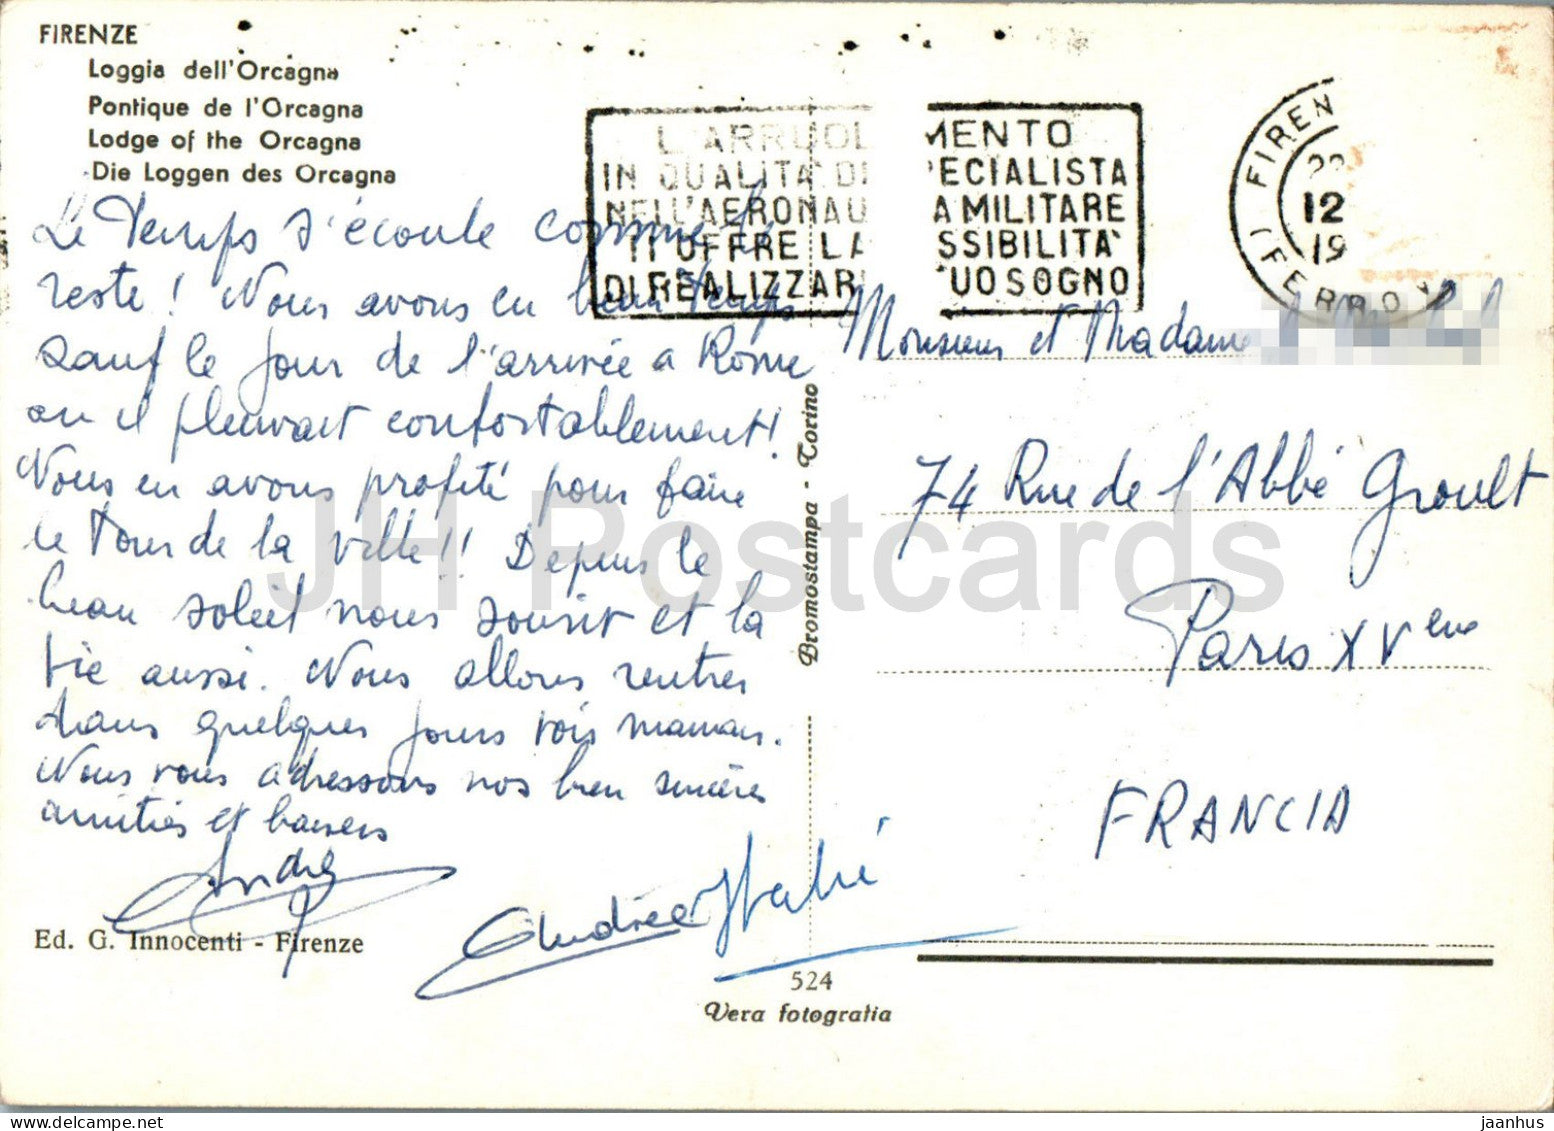 FIRENZE
Loggia dell'Orcagna
Pontique de l'Orcagna
Lodge of the Orcagna
Die Loggen des Orcagna
Le Temps s'écoule comme le
reste ! Nous avons eu beau Temps
sauf le jour de l'arrivée a Rome
ou il pleuvait confortablement!
Nous en avons profité pour faire
le tour de la ville !! Depuis le
beau soleil nous sourit et la
vie aussi. Nous allons rentrer
dans quelques jours
Nous vous adressons nos bien sincères
amitiés et baisers
André
Andrée
Ed. G. Innocenti - Firenze
524
Vera fotografia
Bromostampa - Torino
L'ARRUOL MENTO
IN QUALITA' DI PECIALISTA
NELL'AERONAU A MILITARE
TI OFFRE LA SSIBILITA'
DI REALIZZAR UO SOGNO
FIREN
12
19
(FERROV
Monsieur et Madame
74 Rue de l'Abbé Groult
Paris XVeme
FRANCIA
JH Postcards
jaanhus